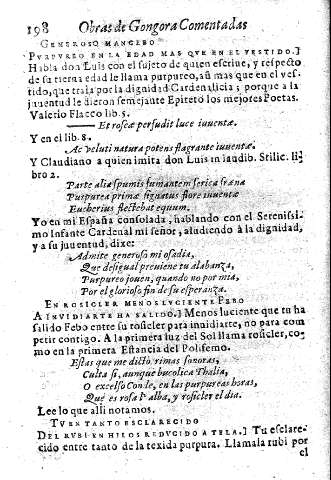 198 Obras de Gongora Comentadas
GENEROSO MANCEBO
PURPUREO EN LA EDAD MAS QUE EN EL VESTIDO.]
Habla don Luis con el sujeto de quien escriue, y respecto
de su tierna edad le llama purpureo, aũ mas que en el ves-
tido, que traìa por la dignidad Cardenalicia; porque a la
juuentud le dieron semejante Epiteto los mejores Poetas.
Valerio Flacco lib. 5.
Et rosea persudit luce iuuentæ.
Y en el lib. 8.
Ac veluti natura potens flagrante iuuentæ.
Y Claudiano a quien imita don Luis in laudib. Stilic. li-
bro 2.
Parte aliæ spumis fumantem serica fræna
Purpurea primæ signatus flore iuuentæ
Eucherius flectebat equum.
Yo en mi España consolada, hablando con el Serenissi-
mo Infante Cardenal mi señor, aludiendo à la dignidad,
y a su juuentud, dixe:
Admite generosa mi osadia,
Que desigual preuiene tu alabanza,
Purpureo jouen, quando no por mia,
Por el glorioso fin de su esperanza.
EN ROSICLER MENOS LUCIENTE FEBO
A INVIDIARTE HA SALIDO.] Menos luciente que tu ha
salido Febo entre su rosicler para inuidiarte, no para com
petir contigo. A la primera luz del Sol llama rosicler, co-
mo en la primera Estancia del Polifemo.
Estas que me dictò rimas sonoras,
Culta si, aunque bucolica Thalia,
O excelso Conde, en las purpureas horas,
Que es rosa l'alba, y rosicler el dia.
Lee lo que alli notamos.
TU EN TANTO ESCLARECIDO
DEL RUBI EN HILOS REDUCIDO A TELA.] Tu esclare-
cido entre tanto de la texida purpura. Llamala rubi por
el